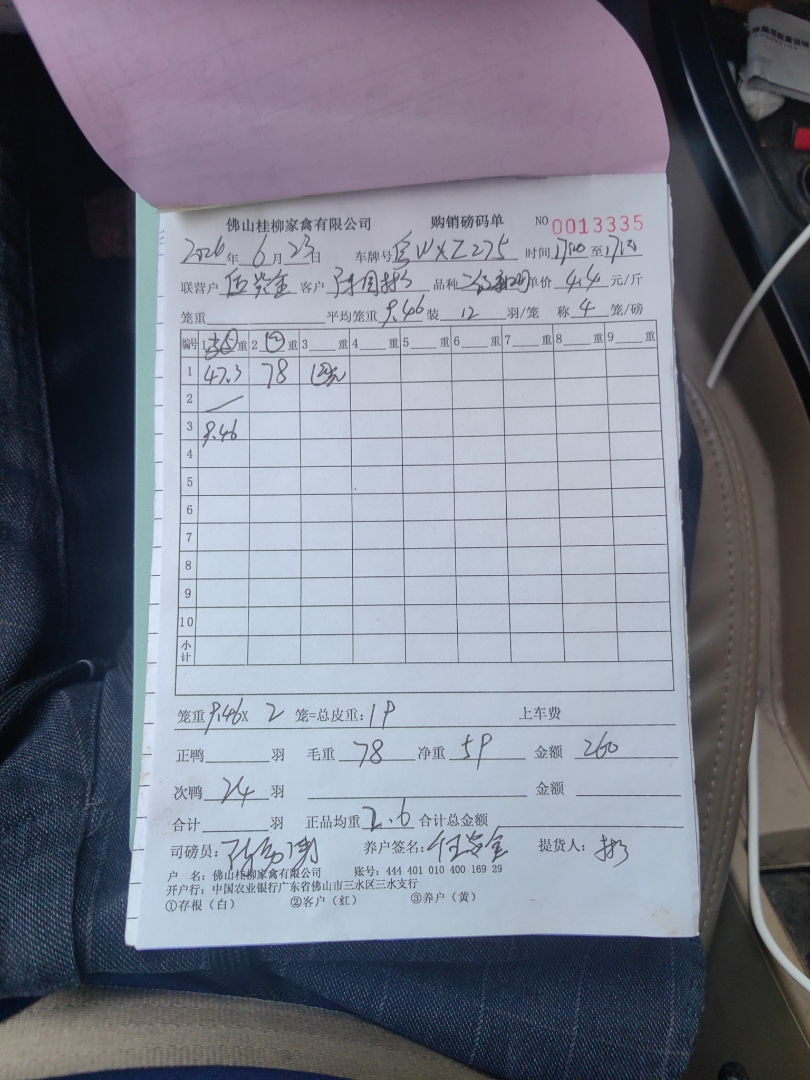 佛山桂柳家禽有限公司 购销磅码单 NO 0013335
2026年 6月 23日 车牌号 WXZ275 时间 至
联营户 客户 品种 单价 4.4 元/斤
笼重 平均笼重 9.46 装 12 羽/笼 称 4 笼/磅
编号 1 重 2 重 3 重 4 重 5 重 6 重 7 重 8 重 9 重
1 47.3 78
2
3 9.46
4
5
6
7
8
9
10
小计
笼重 9.46 x 2 笼=总皮重: 19 上车费
正鸭 羽 毛重 78 净重 59 金额 260
次鸭 24 羽 金额
合计 羽 正品均重 2.6 合计总金额
司磅员: 养户签名: 提货人: 彬
户 名: 佛山桂柳家禽有限公司 账号: 444 401 010 400 169 29
开户行: 中国农业银行广东省佛山市三水区三水支行
①存根（白） ②客户（红） ③养户（黄）